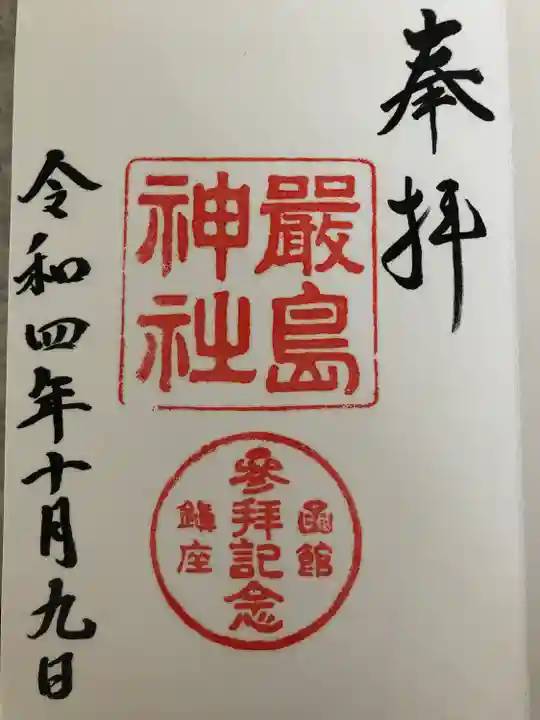 奉拝
嚴島
神社
函館
參拜記念
鎮座
令和四年十月九日